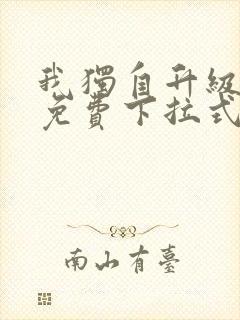 我獨自升級
免費下拉式
南山有臺